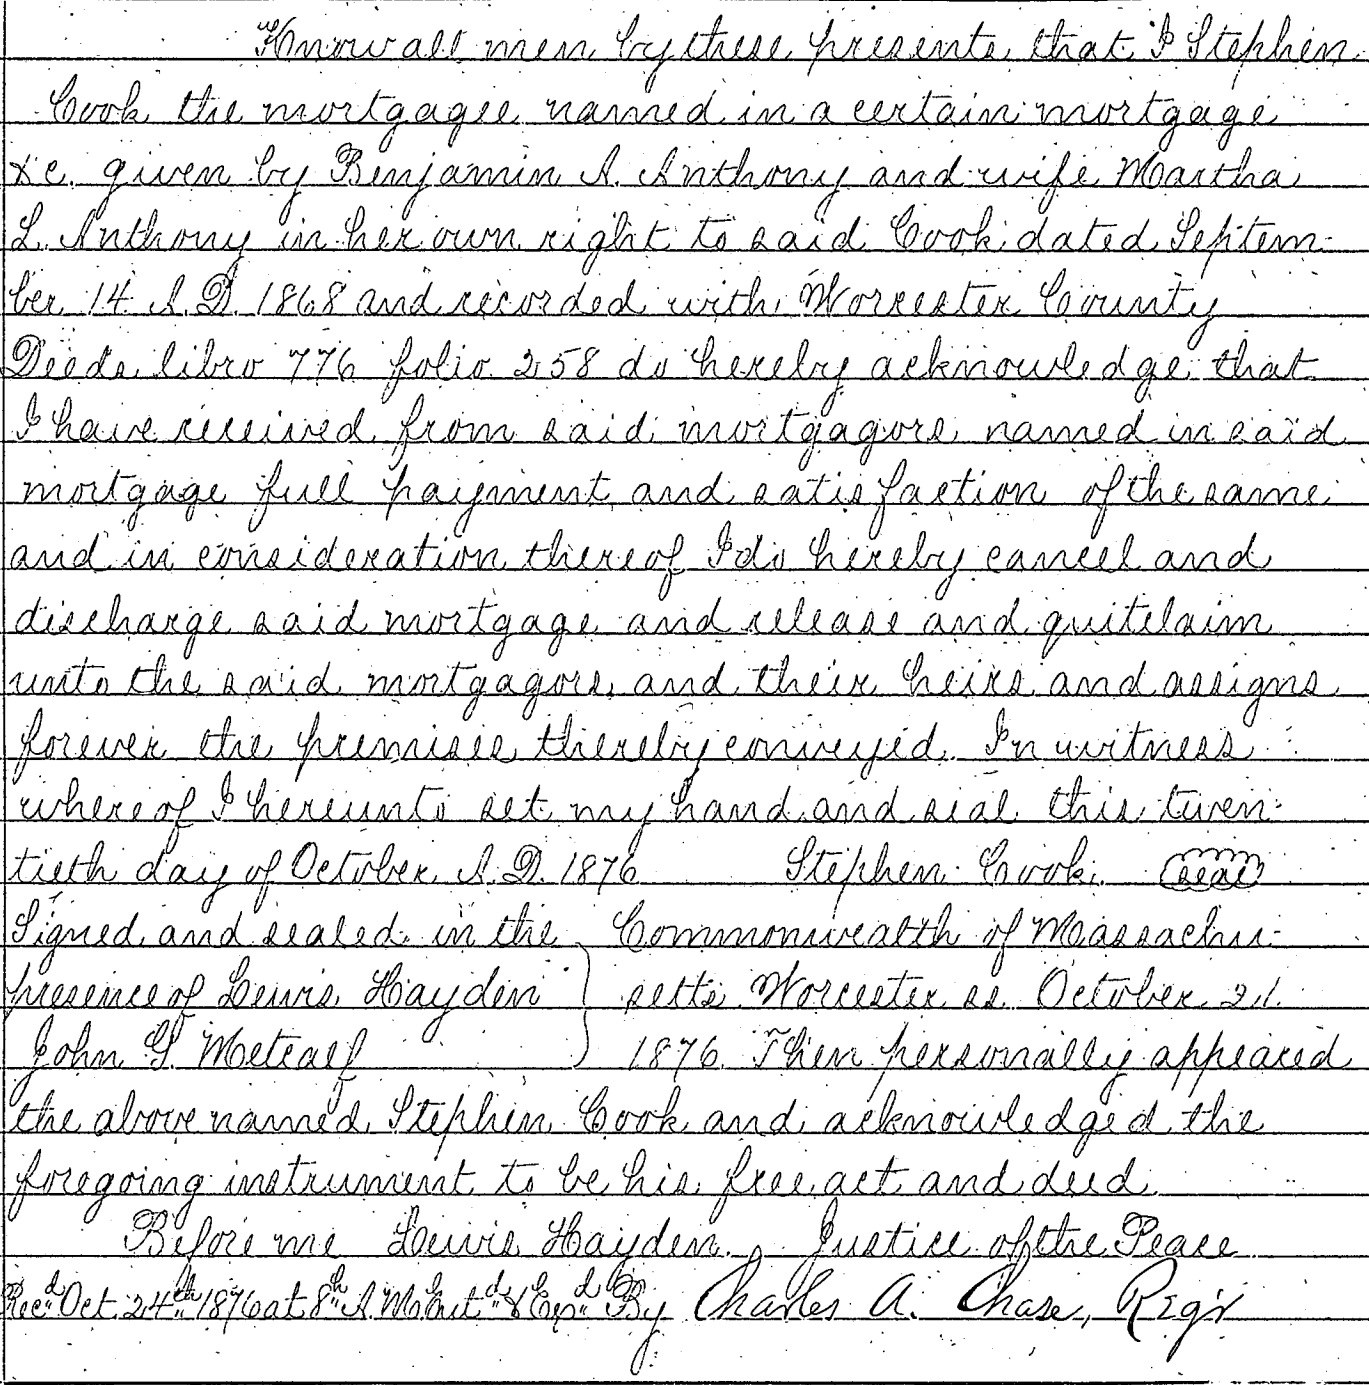 Know all men by these presents that I Stephen
Cook the mortgagee named in a certain mortgage
&c. given by Benjamin A. Anthony and wife Martha
L. Anthony in her own right to said Cook dated Septem-
ber 14 A.D. 1868 and recorded with Worcester County
Deeds libro 776 folio 258 do hereby acknowledge that
I have received from said mortgagors named in said
mortgage full payment and satisfaction of the same
and in consideration thereof I do hereby cancel and
discharge said mortgage and release and quitclaim
unto the said mortgagors, and their heirs and assigns
forever the premises thereby conveyed. In witness
whereof I hereunto set my hand and seal this twen-
tieth day of October A.D. 1876 Stephen Cook. (seal)
Signed and sealed in the } Commonwealth of Massachu-
presence of Lewis Hayden } setts Worcester ss October 21.
John G. Metcalf } 1876. Then personally appeared
the above named Stephen Cook and acknowledged the
foregoing instrument to be his free act and deed
Before me Lewis Hayden, Justice of the Peace
Rec'd Oct. 24th 1876 at 8h A.M. Ent'd & Ex'd By Charles A. Chase, Reg'r